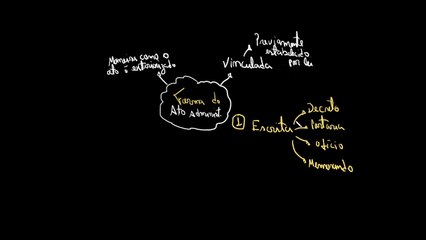 Maneira como o
ato é exteriorizado
Previamente
estabelecido
por lei
Vinculada
Forma do
Ato administ
1 Escrita
Decreto
Portaria
Ofício
Memorando